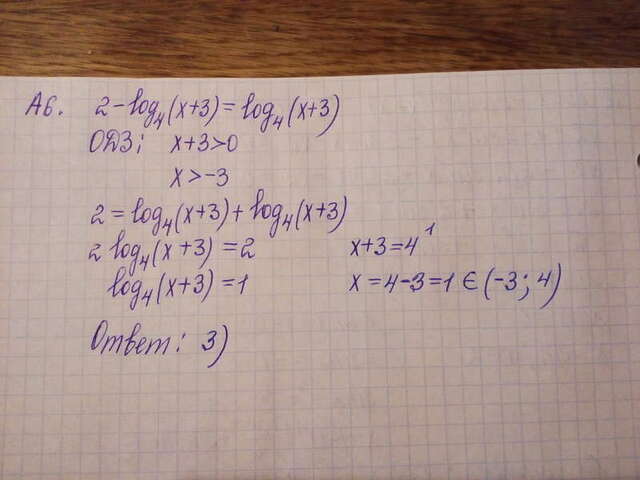 А6. 2-log₄(x+3)=log₄(x+3)
ОДЗ: x+3>0
x>-3
2=log₄(x+3)+log₄(x+3)
2 log₄(x+3)=2 x+3=4¹
log₄(x+3)=1 x=4-3=1 ∈(-3; 4)
Ответ: 3)